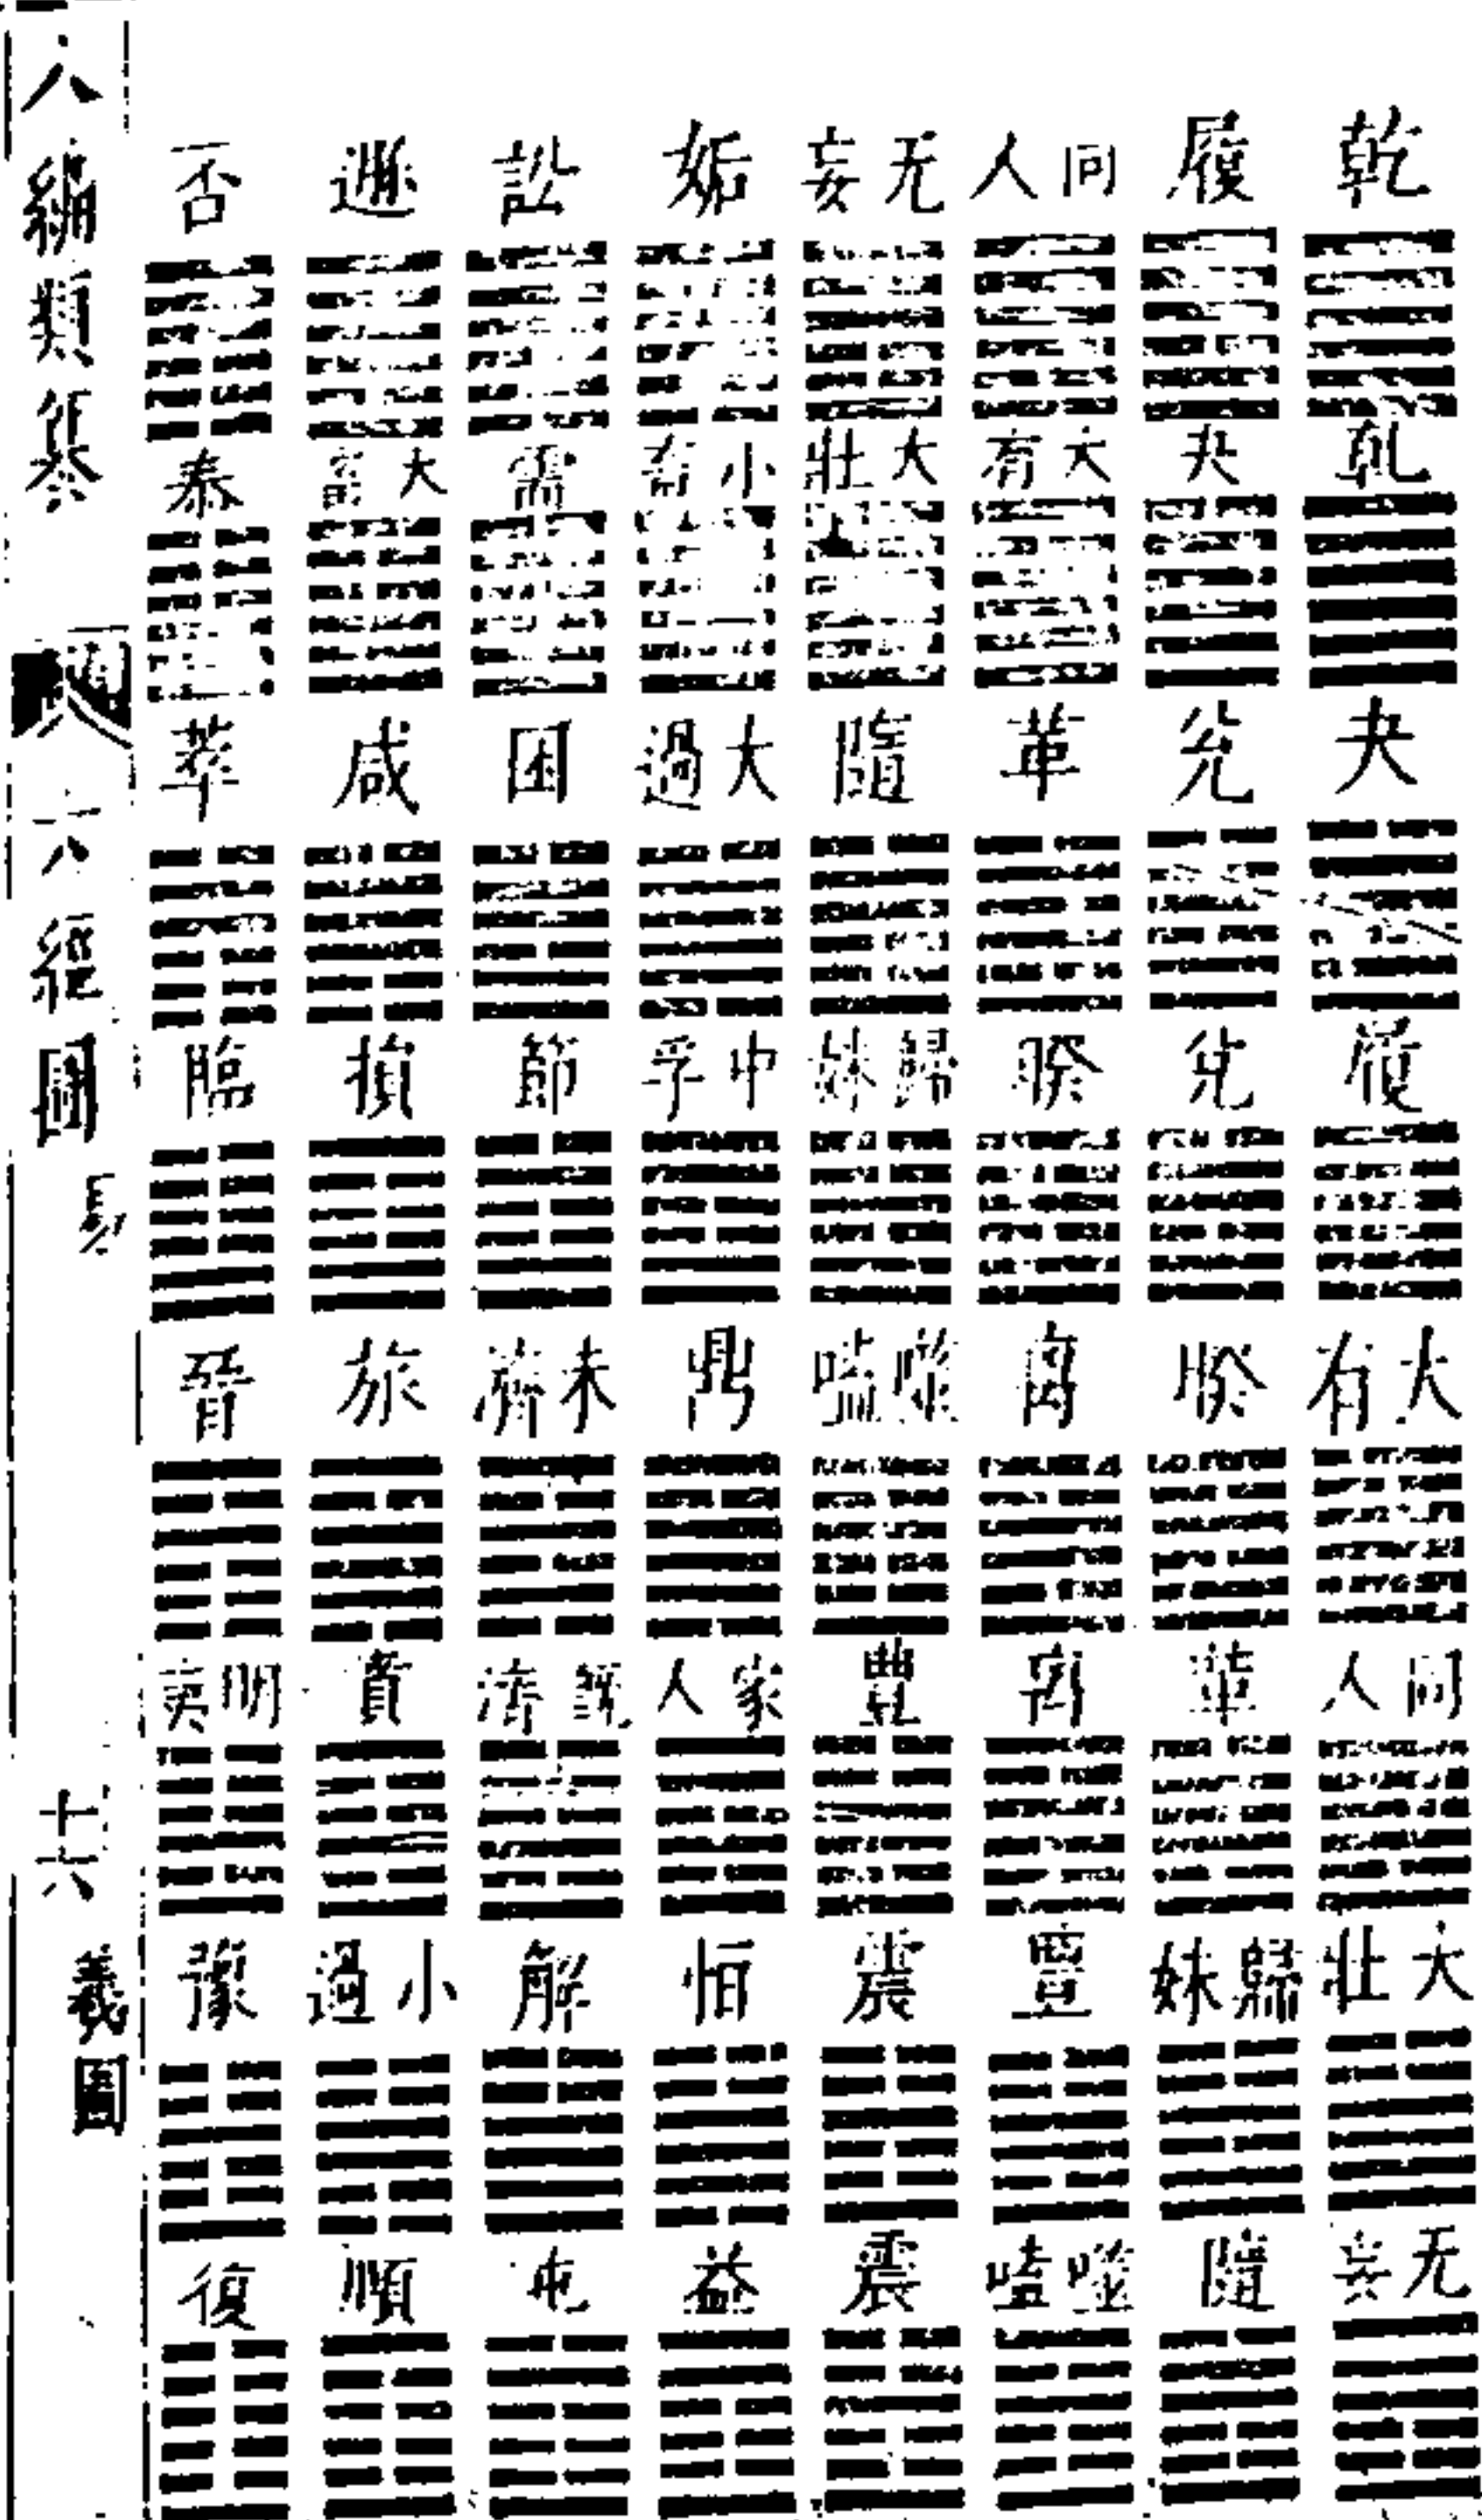 乾 履 同人 无妄 姤 訟 遯 否
乾 夬 大有 大壯 小畜 需 大畜 泰
夬 兌 革 隨 大過 困 咸 萃
履 兌 睽 歸妹 中孚 節 損 臨
大有 睽 离 噬嗑 鼎 未濟 旅 晉
同人 革 离 豐 家人 既濟 賁 明夷
大壯 歸妹 豐 震 恒 解 小過 豫
无妄 隨 噬嗑 震 益 屯 頤 復
八編類纂
六經圖 易
十六
羲圖